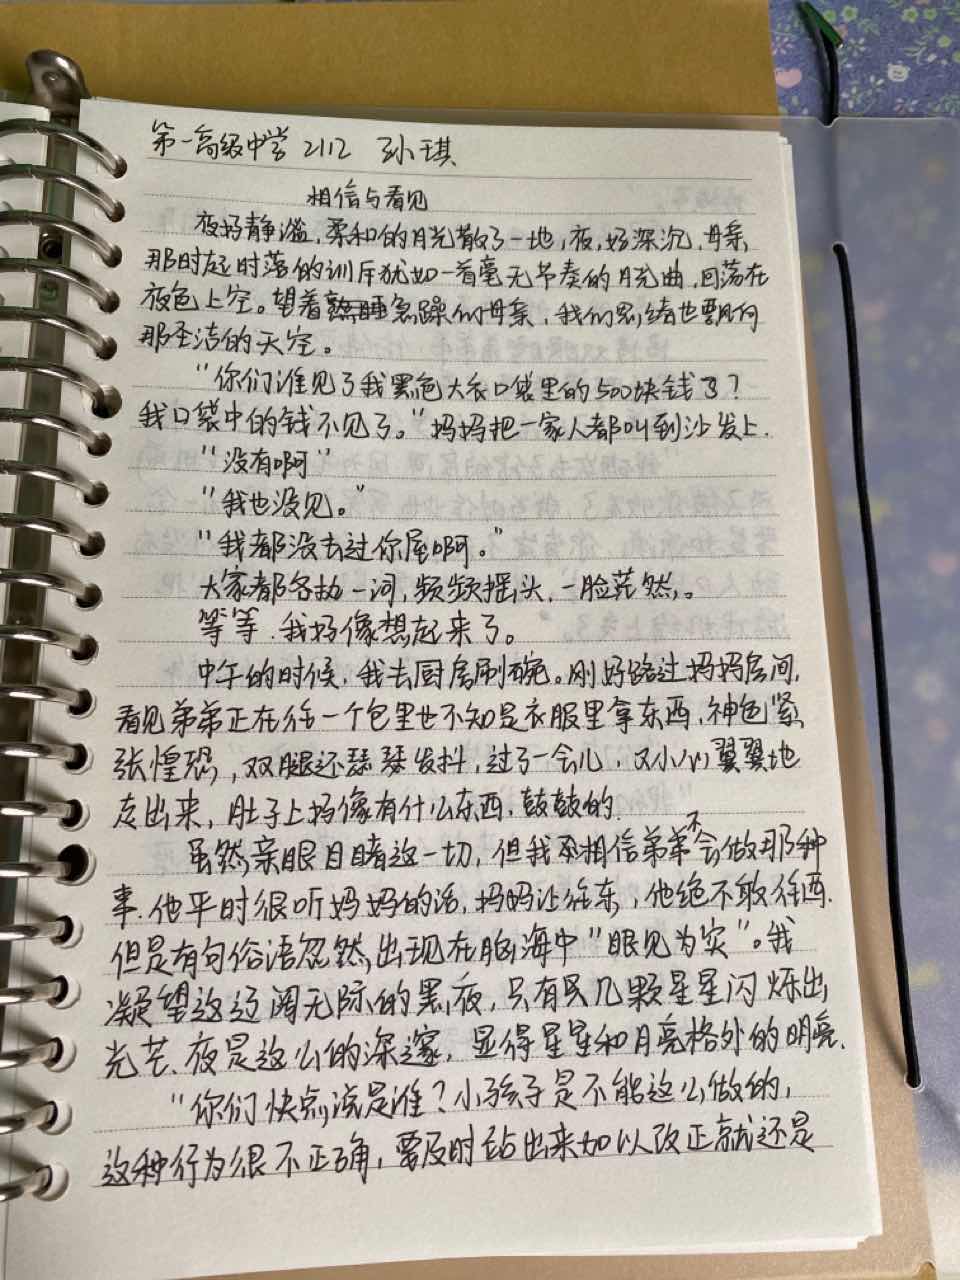 第一高级中学 2112 孙琪
相信与看见
夜好静谧,柔和的月光散了一地,夜,好深沉,母亲
那时起时落的训斥犹如一首毫无节奏的月光曲,回荡在
夜色上空。望着急躁的母亲,我的思绪也飘向
那圣洁的天空。
“你们谁见了我黑色大衣口袋里的500块钱了?
我口袋中的钱不见了。”妈妈把一家人都叫到沙发上.
“没有啊”
“我也没见。”
“我都没去过你屋啊。”
大家都各执一词,频频摇头,一脸茫然。
等等.我好像想起来了。
中午的时候,我去厨房刷碗。刚好路过妈妈房间,
看见弟弟正在往一个包里也不知是衣服里拿东西,神色紧
张惶恐,双腿还瑟瑟发抖,过了一会儿,又小心翼翼地
走出来,肚子上好像有什么东西,鼓鼓的.
虽然亲眼目睹这一切,但我相信弟弟不会做那种
事.他平时很听妈妈的话,妈妈让往东,他绝不敢往西.
但是有句俗语忽然出现在脑海中“眼见为实”。我
凝望这辽阔无际的黑夜,只有几颗星星闪烁出
光芒.夜是这么的深邃,显得星星和月亮格外的明亮.
“你们快点说是谁?小孩子是不能这么做的,
这种行为很不正确,要及时站出来加以改正就还是